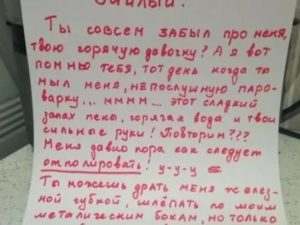 Милый!
Ты совсем забыл про меня,
твою горячую давочку? А я вот
помню тебя, тот день когда ты
мыл меня, непослушную паро-
варку... мммм.... этот сладкий
запах пемо, горячая вода и твои
сильные руки! Повторим???
Меня давно пора как следует
отполировать! у-у-у
Ты можешь драть меня желез-
ной губкой, шлёпать по моим
металическим бокам, но только